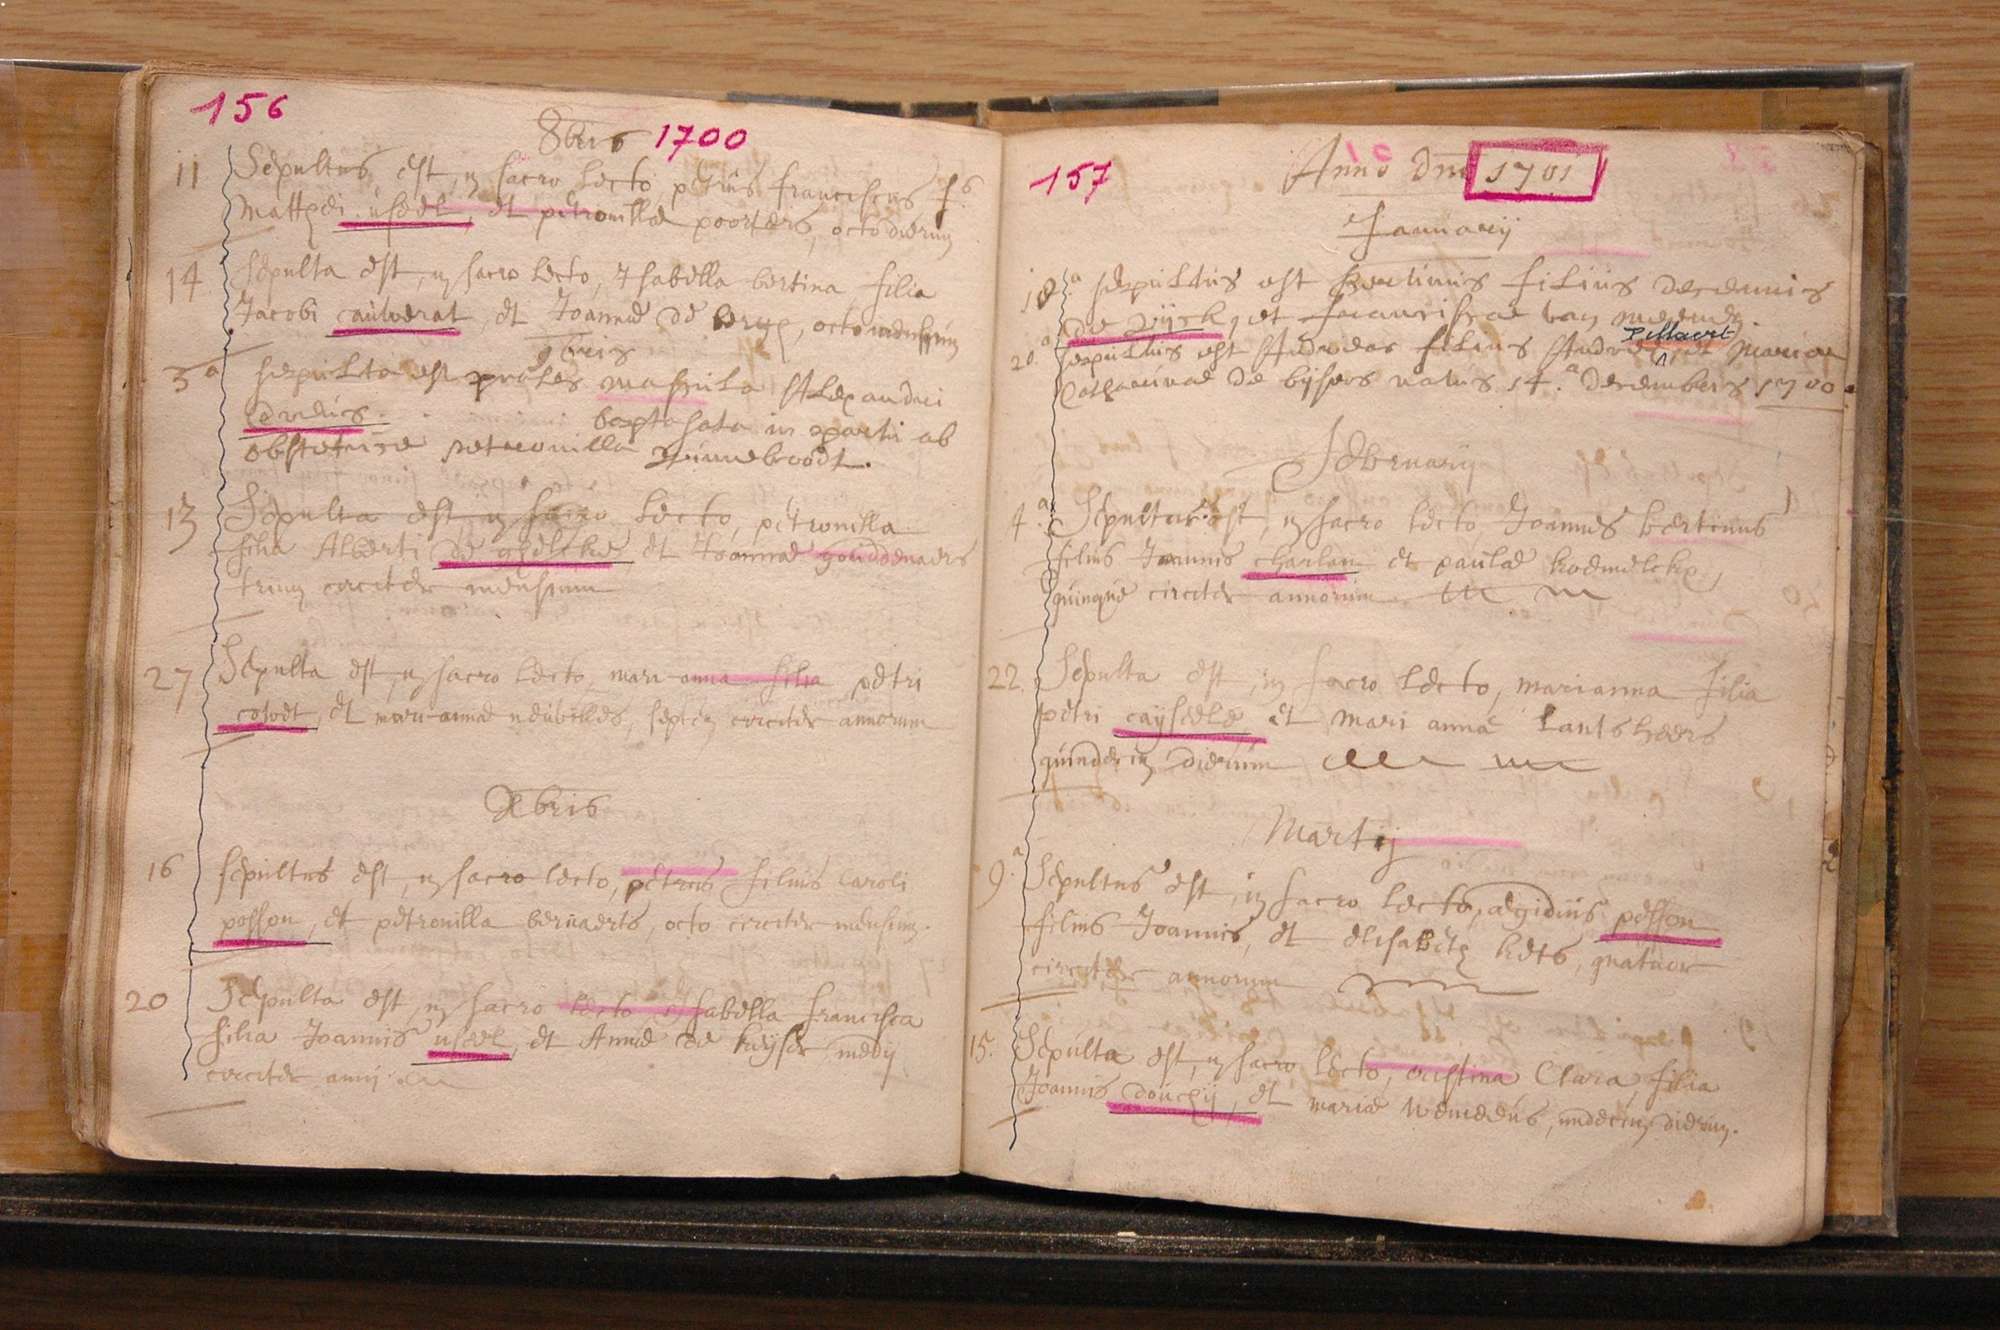 156
8bris 1700
11 Sepultus est in sacro lecto petrus franciscus f.s
Matthei useel, et petronillæ poorters, octo dierum
14 Sepulta est, in sacro lecto, Isabella bertina filia
Jacobi caulverat, et Joannæ de brux, octo mensium
9bris
3a sepulta est proles mascula Alexandri
edreus. baptisata in partu ab
obstetrice petronilla Winnebroodt.
13 Sepulta est in sacro lecto, petronilla
filia Alberti de ghelcke et Joannæ goudenaers
trium circiter mensium
27 Sepulta est, in sacro lecto, mari anna filia petri
cosoet, et mari annæ neuvilles, septem circiter annorum
Xbris
16 sepultus est, in sacro lecto, petrus filius Caroli
posson, et petronilla bernaerts, octo circiter mensium.
20 Sepulta est in sacro lecto, isabella francisca
filia Joannis useel, et Annæ de keyser medij
circiter anni
157
Anno dni 1701
Januarij
10.a sepultus est bertinus filius
de vijck, et van
20.a sepultus est Andreas filius Andreæ pillaert et Mariæ
Catharinæ de bijsers natus 14.a decembris 1700.
Februarij
4.a Sepultus est, in sacro lecto Joannes bertinus
filius Joannis charlam et paulæ koemelckx,
quinque circiter annorum
22. Sepulta est, in sacro lecto, marianna filia
petri caijseele et Mari anna Lantsheers
quindecim dierum
Martij
9.a Sepultus est, in sacro lecto, ægidius posson
filius Joannis, et elisabeth kets, quatuor
circiter annorum
15. Sepulta est, in sacro lecto, cristina Clara filia
Joannis douchij, et mariæ wemeeus, undecim dierum.